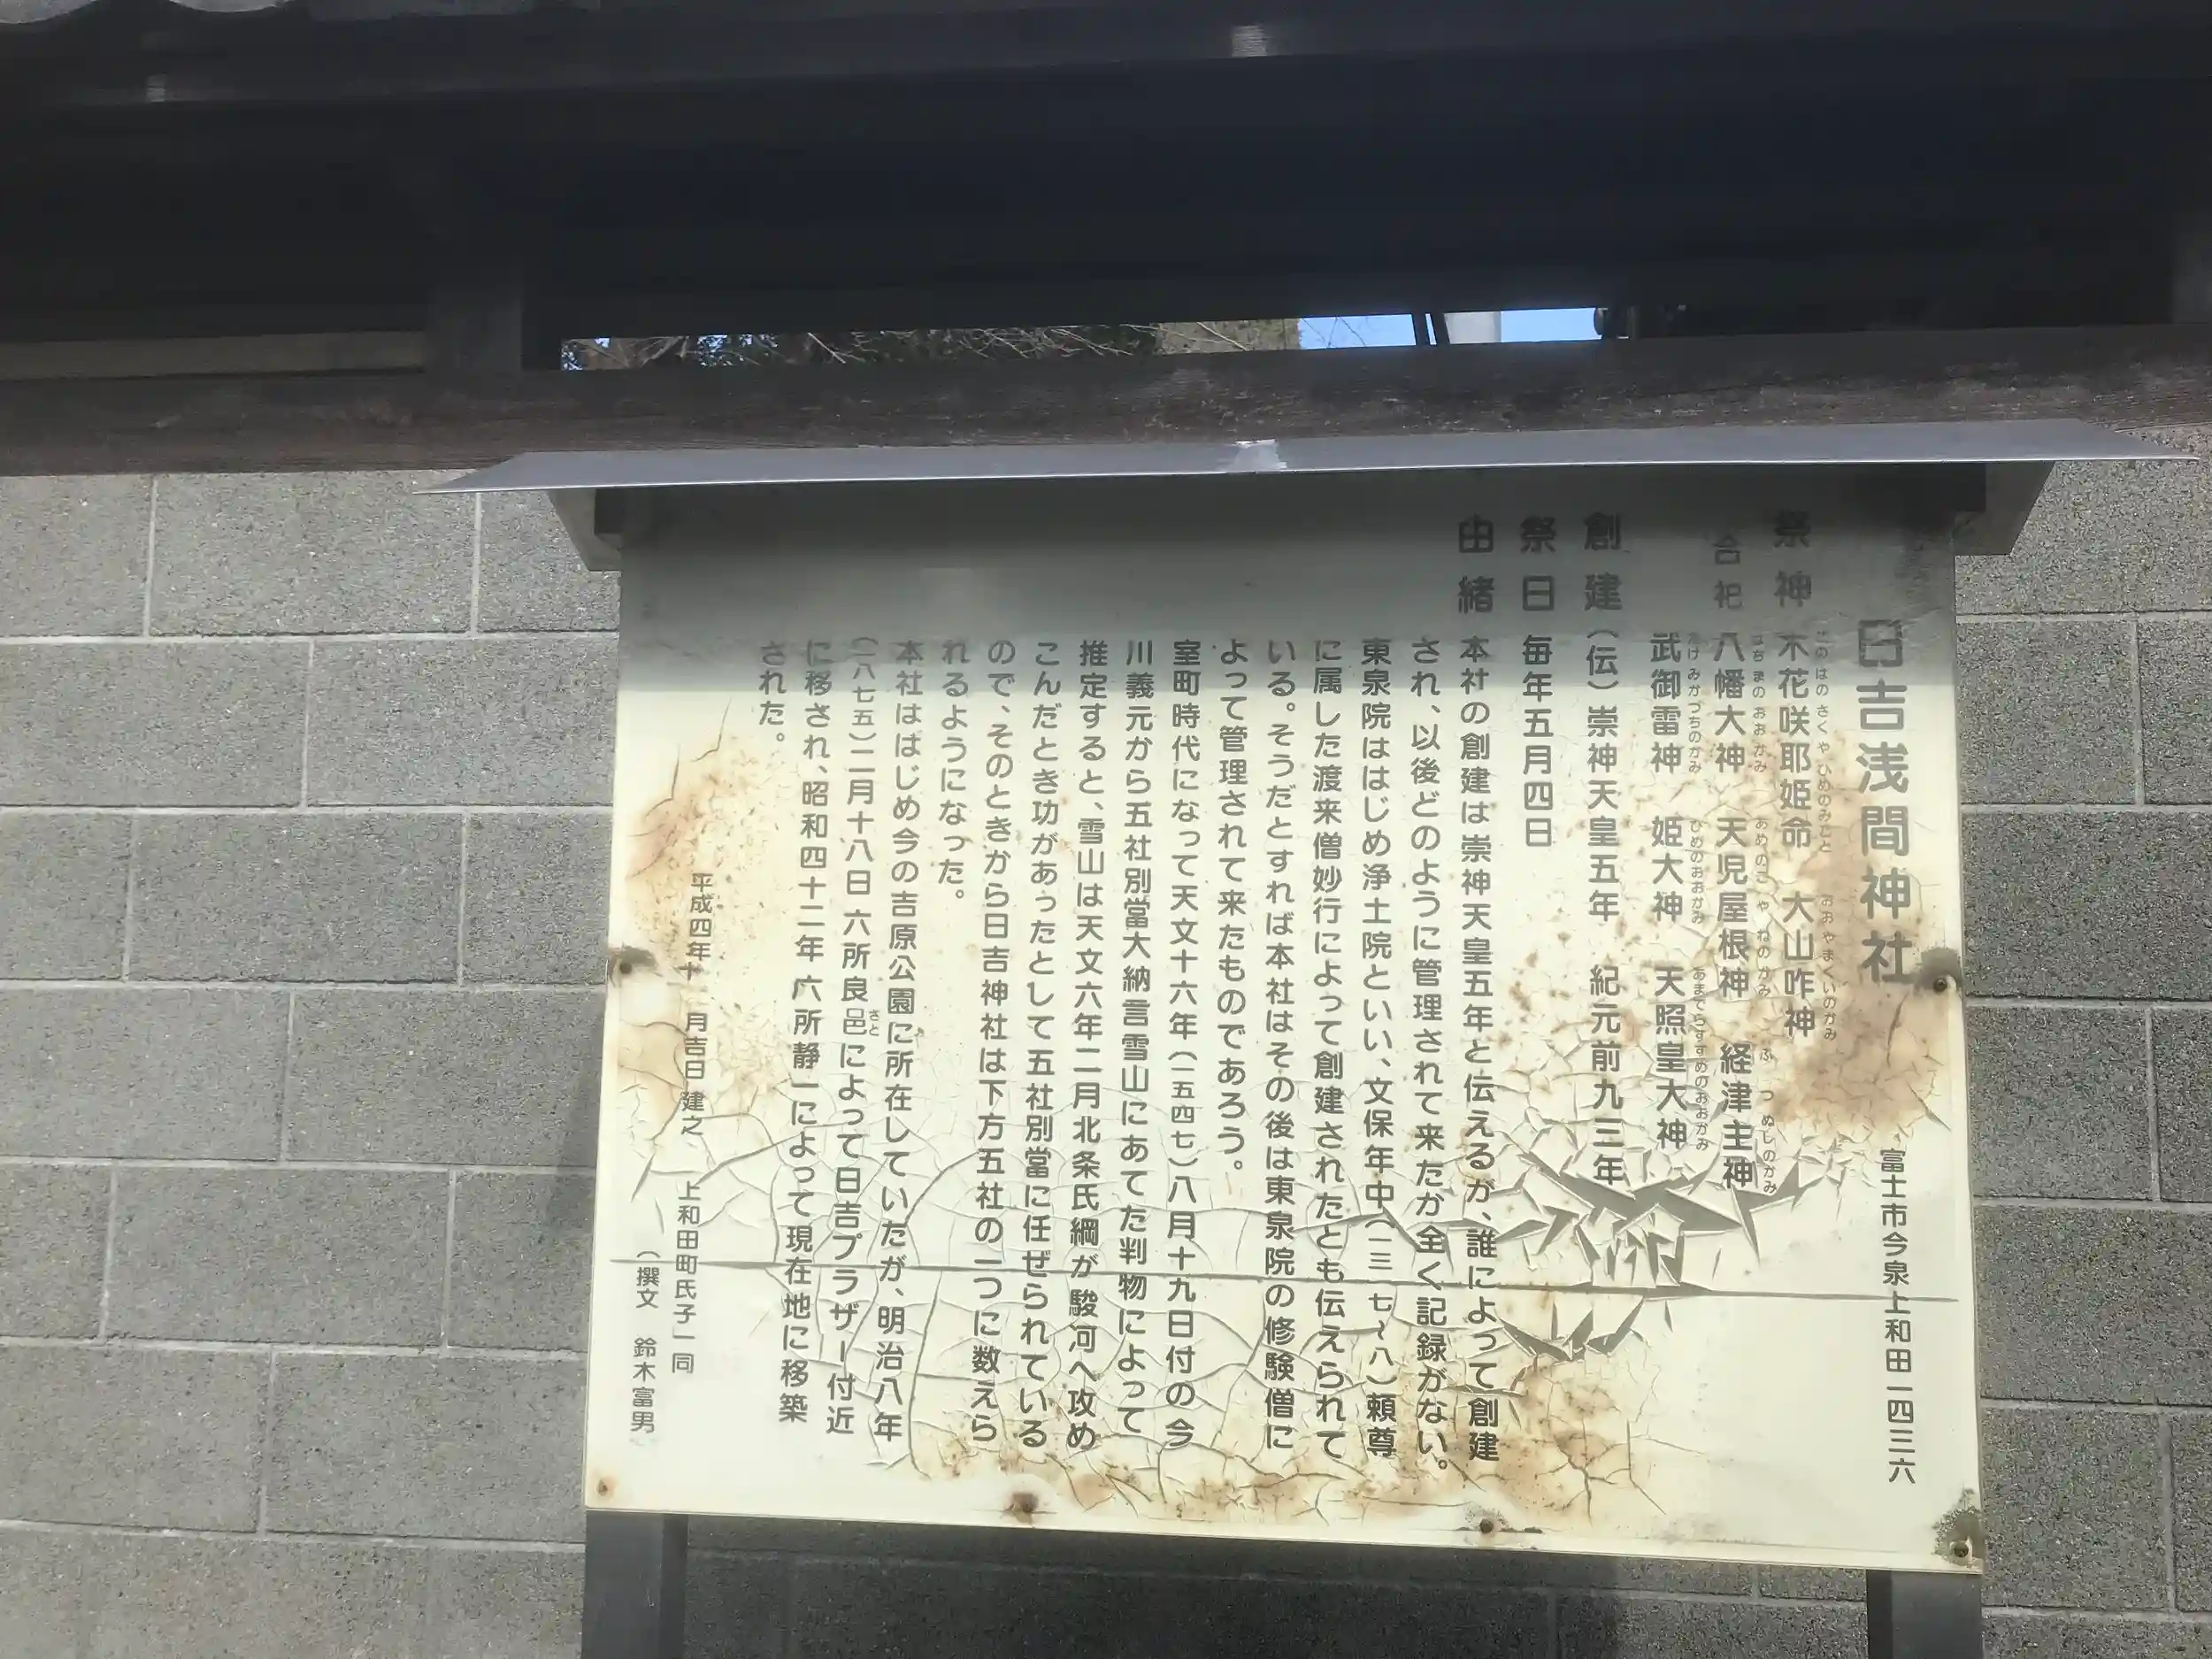 日吉浅間神社
富士市今泉上和田一四三六
祭神 木花咲耶姫命 大山咋神
このはのさくやひめのみこと おおやまくいのかみ
合祀 八幡大神 天児屋根神 経津主神
はちまのおおかみ あめのこやねのかみ ふつぬしのかみ
武御雷神 姫大神 天照皇大神
たけみかづちのかみ ひめのおおかみ あまてらすすめのおおかみ
創建 (伝)崇神天皇五年 紀元前九三年
祭日 毎年五月四日
由緒 本社の創建は崇神天皇五年と伝えるが、誰によって創建
され、以後どのように管理されて来たが全く記録がない。
東泉院ははじめ浄土院といい、文保年中(一三一七~八)頼尊
に属した渡来僧妙行によって創建されたとも伝えられて
いる。そうだとすれば本社はその後は東泉院の修験僧に
よって管理されて来たものであろう。
室町時代になって天文十六年(一五四七)八月十九日付の今
川義元から五社別當大納言雪山にあてた判物によって
推定すると、雪山は天文六年二月北条氏綱が駿河へ攻め
こんだとき功があったとして五社別當に任ぜられている
ので、そのときから日吉神社は下方五社の一つに数えら
れるようになった。
本社ははじめ今の吉原公園に所在していたが、明治八年
(一八七五)二月十八日六所良邑によって日吉プラザー付近
さと
に移され、昭和四十二年六所静一によって現在地に移築
された。
平成四年十一月吉日 建之 上和田町氏子一同
(撰文 鈴木富男)